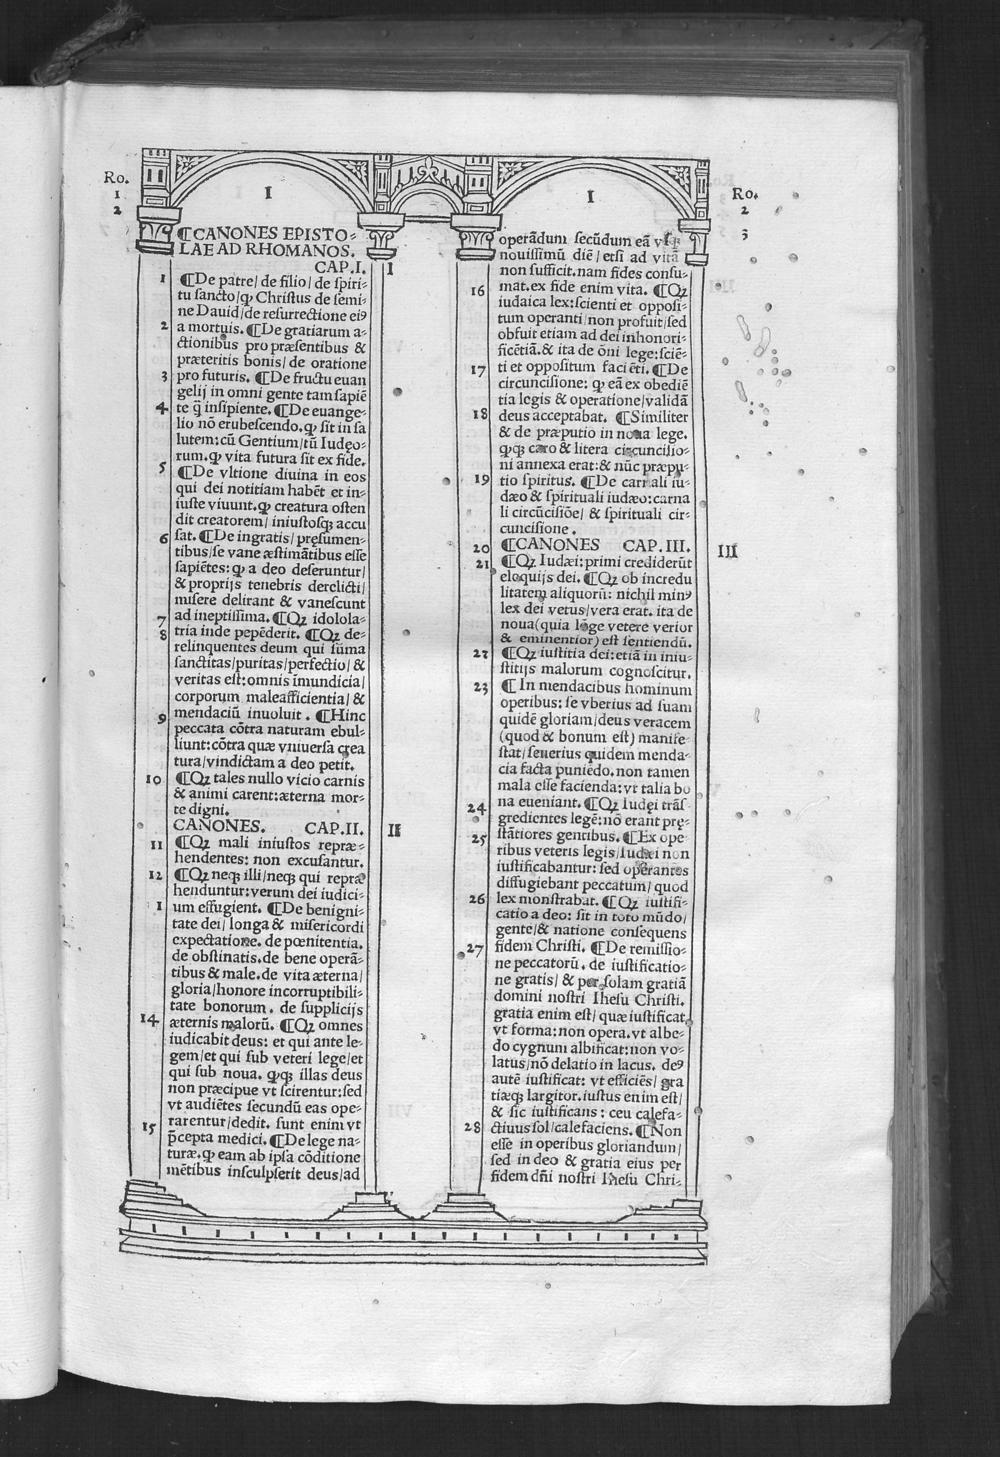 Ro.
1
2
I
¶CANONES EPISTO-
LAE AD RHOMANOS.
CAP.I. I
1 ¶De patre/ de filio/ de spiri-
tu sancto/ꝙ Christus de semi-
ne Dauid/de resurrectione eiꝰ
2 a mortuis. ¶De gratiarum a-
ctionibus pro præsentibus &
præteritis bonis/ de oratione
3 pro futuris. ¶De fructu euan
gelij in omni gente tam sapiē
4 te q̄ insipiente. ¶De euange-
lio nō erubescendo.ꝙ sit in sa
lutem: cū Gentium/tū Iudęo-
rum.ꝙ vita futura sit ex fide.
5 ¶De vltione diuina in eos
qui dei notitiam habēt et in-
iuste viuunt.ꝙ creatura osten
dit creatorem/ iniustosqȝ accu
6 sat. ¶De ingratis/ pręsumen-
tibus/se vane æstimātibus esse
sapiētes: ꝙ a deo deseruntur/
& proprijs tenebris derelicti/
misere delirant & vanescunt
7 ad ineptissima. ¶Qȝ idolola-
8 tria inde pepēderit. ¶Qȝ de-
relinquentes deum qui sūma
sanctitas/puritas/perfectio/ &
veritas est: omnis īmundicia/
corporum maleafficientia/ &
9 mendaciū inuoluit. ¶Hinc
peccata cōtra naturam ebul-
liunt: cōtra quæ vniuersa crea
tura/vindictam a deo petit.
10 ¶Qȝ tales nullo vicio carnis
& animi carent: æterna mor-
te digni.
CANONES. CAP.II. II
11 ¶Qȝ mali iniustos repræ-
hendentes: non excusantur.
12 ¶Qȝ neqȝ illi/neqȝ qui repræ
henduntur: verum dei iudici-
1 um effugient. ¶De benigni-
tate dei/ longa & misericordi
expectatione. de pœnitentia.
de obstinatis.de bene operā-
tibus & male.de vita æterna/
gloria/honore incorruptibili-
tate bonorum. de supplicijs
14 æternis malorū. ¶Qȝ omnes
iudicabit deus: et qui ante le-
gem/et qui sub veteri lege/et
qui sub noua. ꝙqȝ illas deus
non præcipue vt scirentur: sed
vt audiētes secundū eas ope-
rarentur/dedit. sunt enim vt
15 p̄cepta medici. ¶De lege na-
turæ.ꝙ eam ab ipsa cōditione
mētibus insculpserit deus/ad
I
Ro.
2
3
operādum secūdum eā
nouissimū diē/ etsi ad vitā
non sufficit. nam fides consu-
16 mat. ex fide enim vita. ¶Qȝ
iudaica lex: scienti et opposi-
tum operanti/non profuit/sed
obfuit etiam ad dei inhonori-
ficētiā.& ita de ōni lege: sciē-
17 ti et oppositum faciēti. ¶De
circuncisione: ꝙ eā ex obediē
tia legis & operatione/validā
18 deus acceptabat. ¶Similiter
& de præputio in noua lege.
ꝙqȝ caro & litera circuncisio-
ni annexa erat: & nūc præpu-
19 tio spiritus. ¶De carnali iu-
dæo & spirituali iudæo: carna
li circūcisiōe/ & spirituali cir-
cuncisione.
20 ¶CANONES CAP.III. III
21 ¶Qȝ Iudæi: primi crediderūt
eloquijs dei. ¶Qȝ ob incredu
litatem aliquorū: nichil minꝰ
lex dei vetus/vera erat. ita de
noua(quia lōge vetere verior
& eminentior) est sentiendū.
22 ¶Qȝ iustitia dei: etiā in iniu-
stitijs malorum cognoscitur.
23 ¶ In mendacibus hominum
operibus: se vberius ad suam
quidē gloriam/deus veracem
(quod & bonum est) manife-
stat/ seuerius quidem menda-
cia facta puniēdo. non tamen
mala esse facienda: vt talia bo
24 na eueniant. ¶Qȝ Iudęi trāſ
gredientes legē: nō erant prę-
25 stātiores gentibus. ¶Ex ope
ribus veteris legis/Iudæi non
iustificabantur: sed operantes
diffugiebant peccatum/ quod
26 lex monstrabat. ¶Qȝ iustifi-
catio a deo: sit in toto mūdo/
gente/& natione consequens
27 fidem Christi. ¶De remissio-
ne peccatorū. de iustificatio-
ne gratis/ & per solam gratiā
domini nostri Ihesu Christi.
gratia enim est/ quæ iustificat
vt forma: non opera. vt albe-
do cygnum albificat: non vo-
latus/nō delatio in lacus. deꝰ
autē iustificat: vt efficiēs/ gra
tiæqȝ largitor. iustus enim est/
& sic iustificans: ceu calefa-
28 ctiuus sol/calefaciens. ¶Non
esse in operibus gloriandum/
sed in deo & gratia eius per
fidem dn̄i nostri Ihesu Chri-